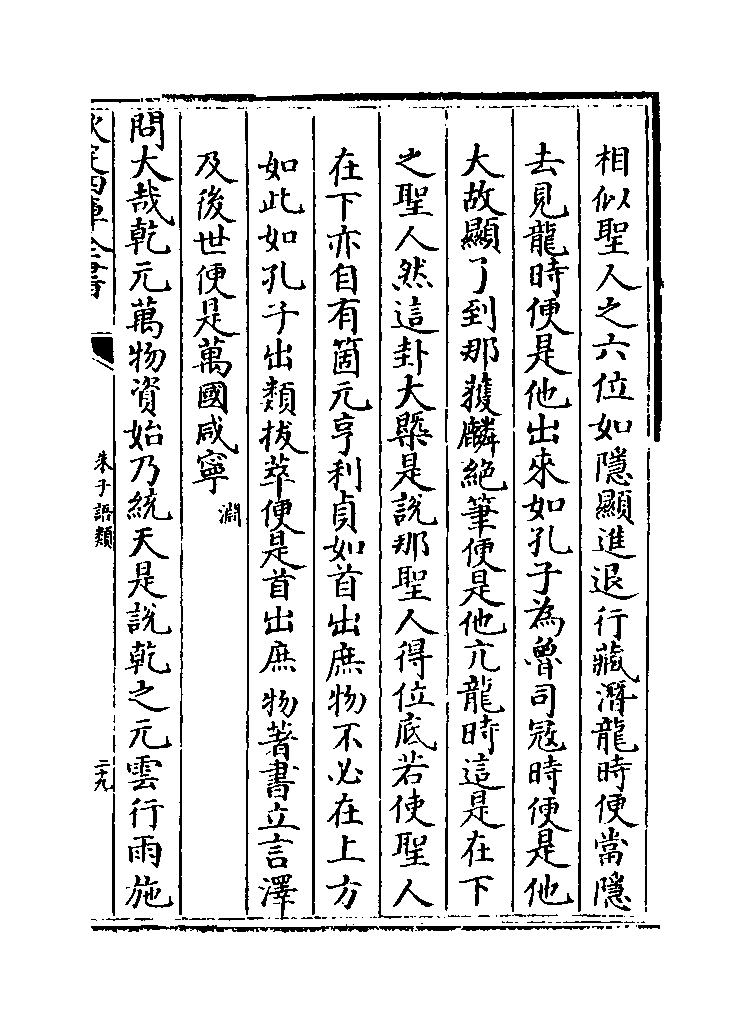 相似聖人之六位如隱顯進退行藏潛龍時便當隱
去見龍時便是他出來如孔子為魯司寇時便是他
大故顯了到那獲麟絕筆便是他亢龍時這是在下
之聖人然這卦大槩是說那聖人得位底若使聖人
在下亦自有箇元亨利貞如首出庶物不必在上方
如此如孔子出類拔萃便是首出庶物著書立言澤
及後世便是萬國咸寧淵
問大哉乾元萬物資始乃統天是說乾之元雲行雨施
欽定四庫全書
朱子語類
二十九